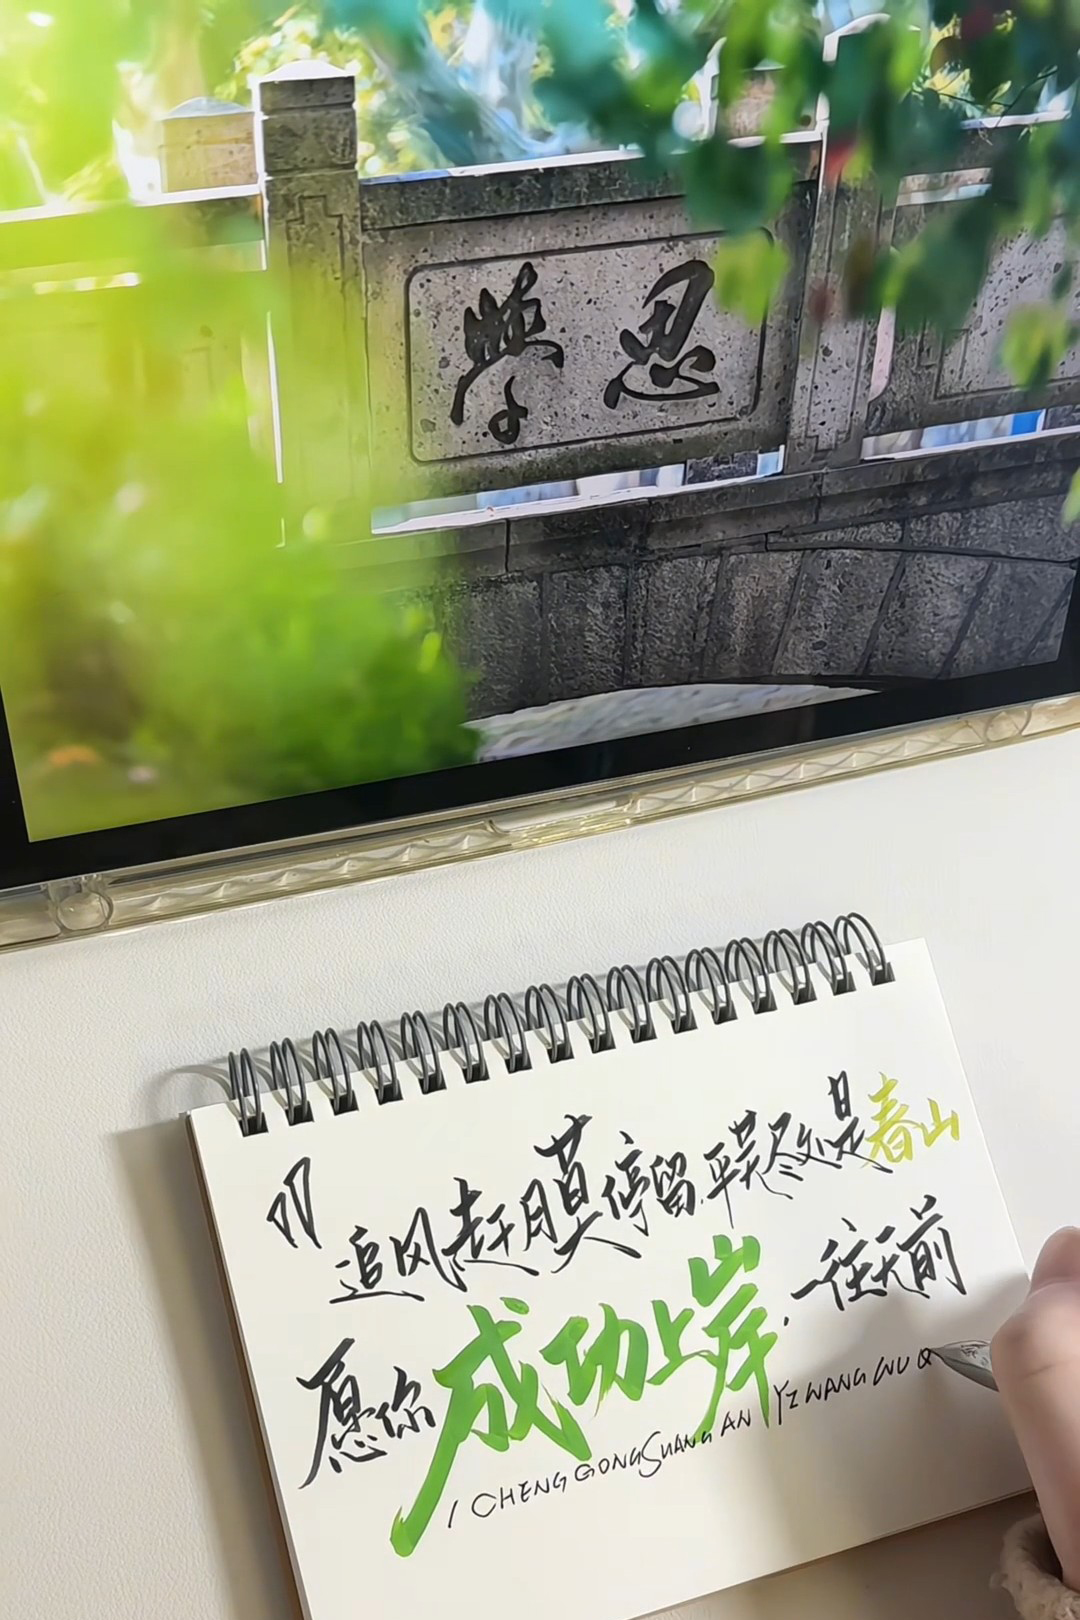 學思
"追风赶月莫停留.平芜尽处是春山
愿你成功上岸.一往无前
/ CHENG GONG SHANG AN YI WANG WU Q